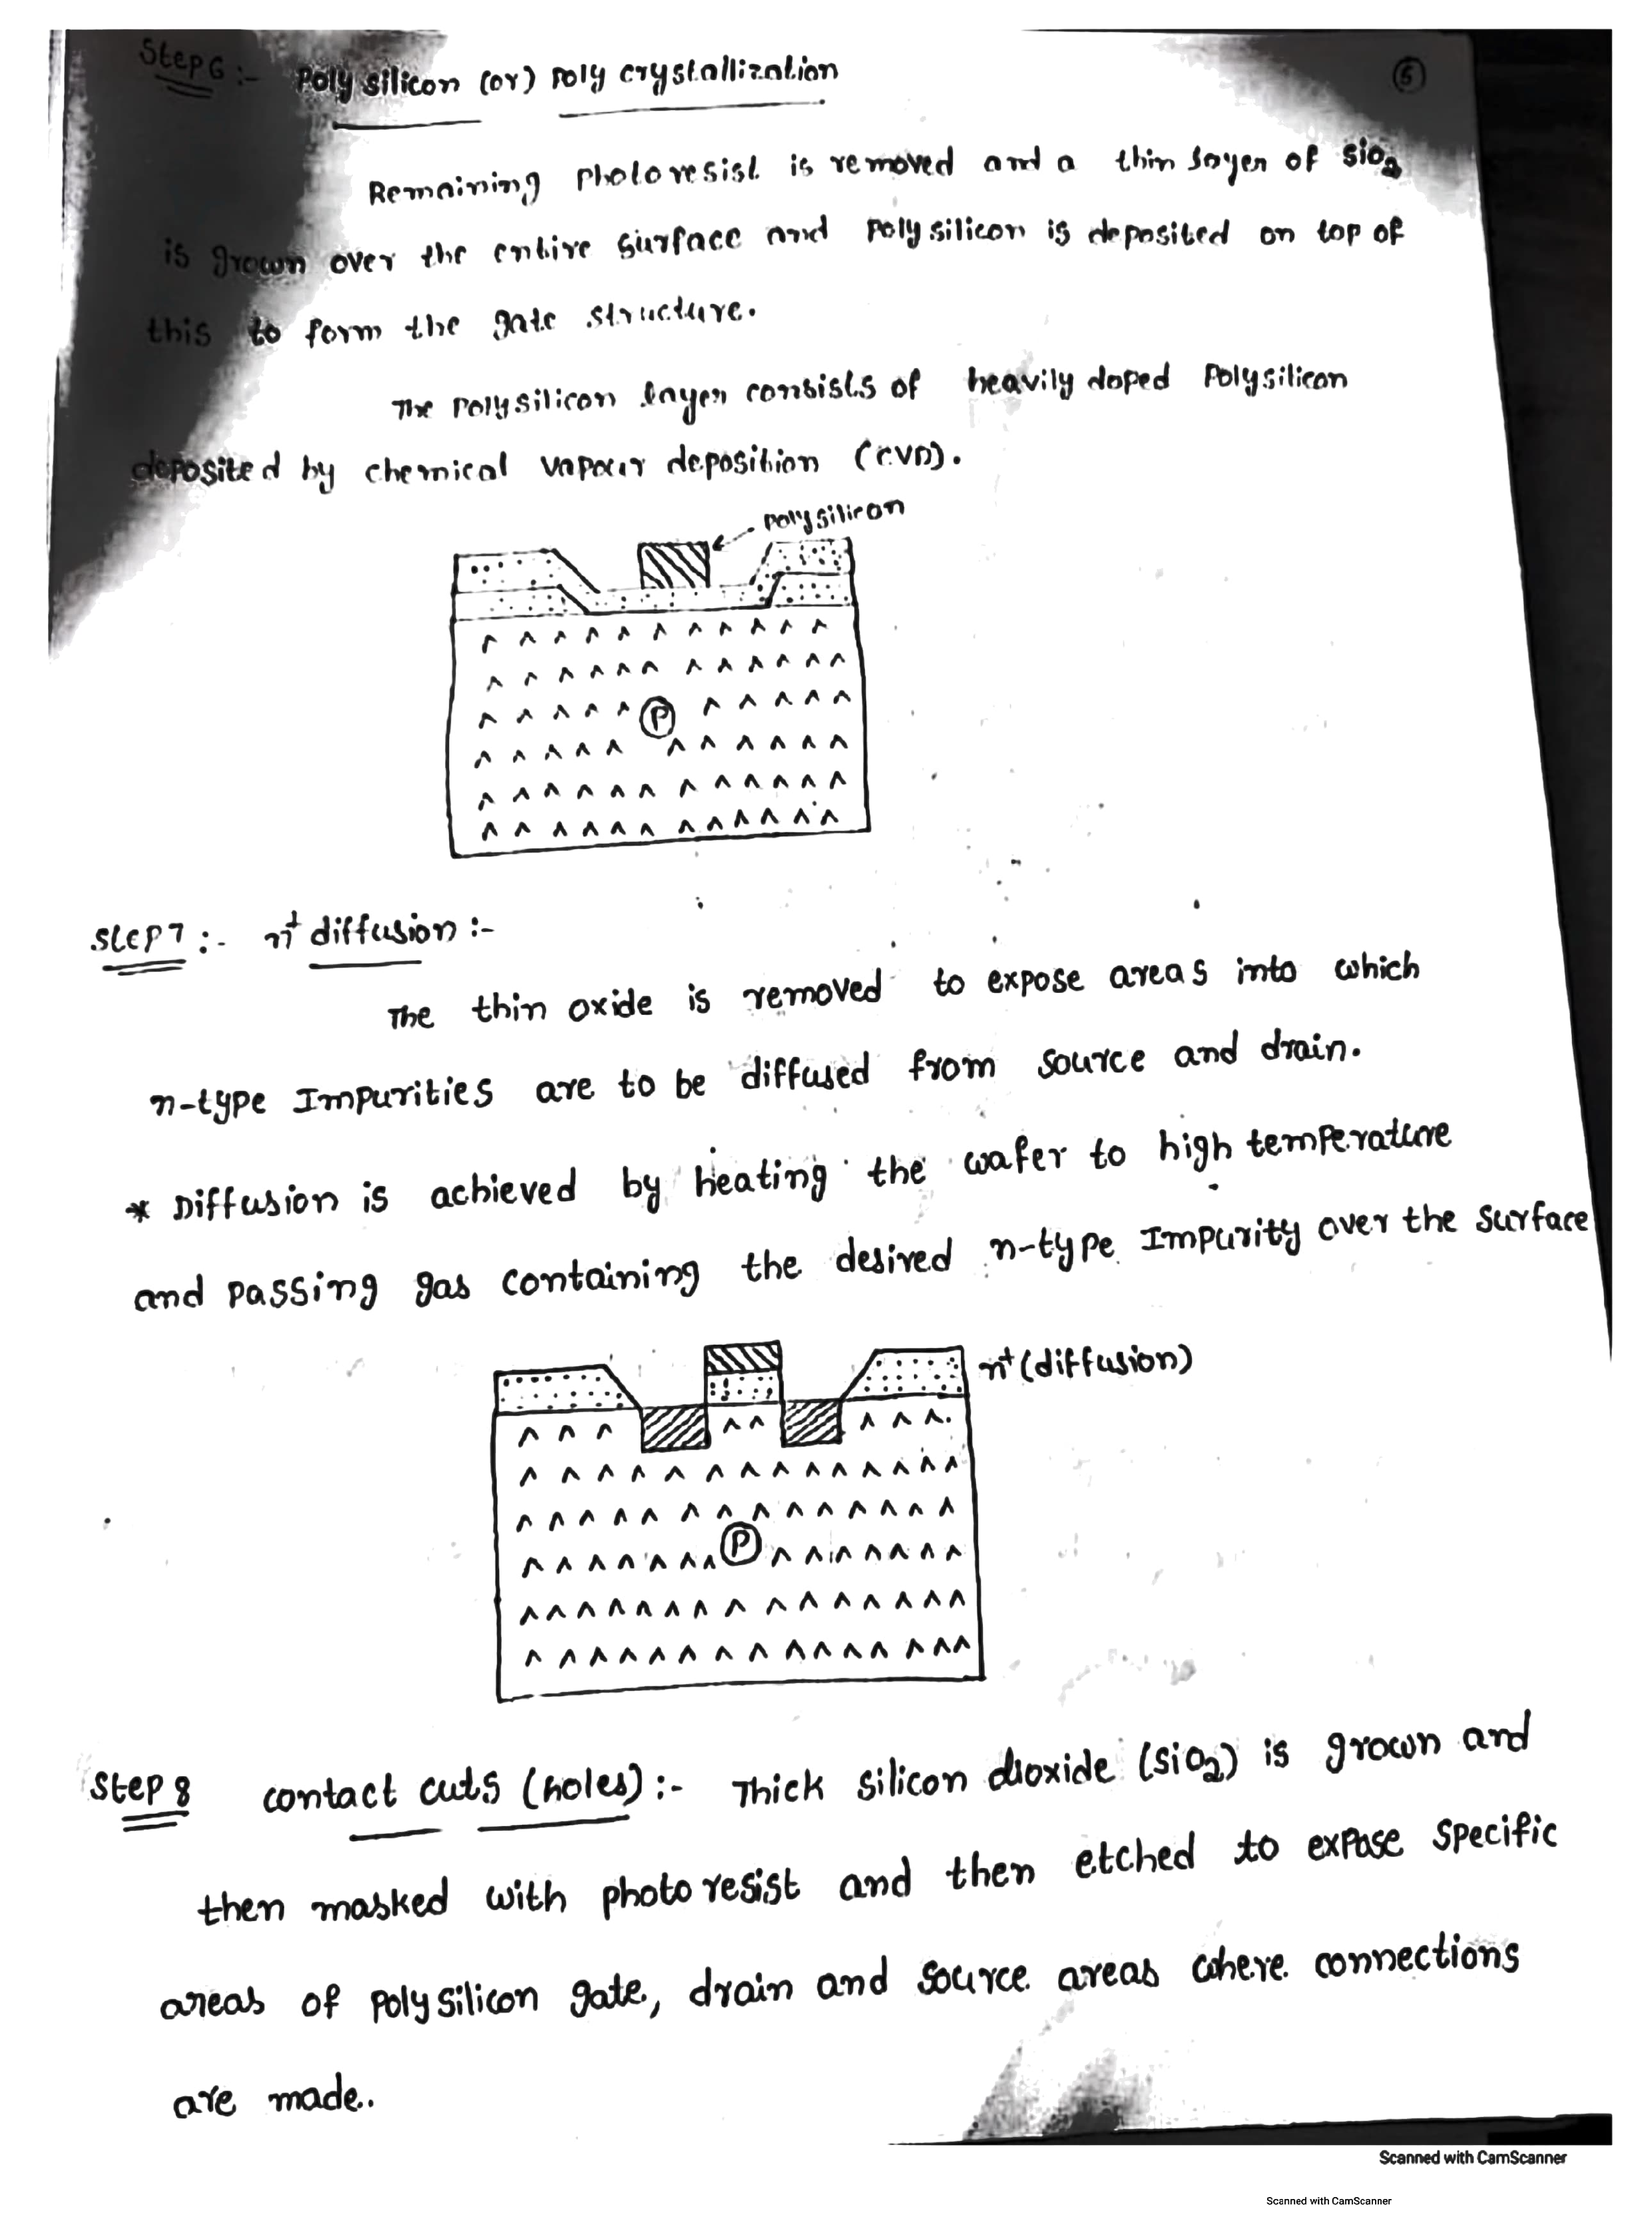 Step6 :- Poly silicon (or) Poly crystallization
5
Remaining Photoresist is removed and a thin layer of SiO2
is grown over the entire surface and Polysilicon is deposited on top of
this to form the gate structure.
The Polysilicon layer consists of heavily doped Polysilicon
deposited by chemical vapour deposition (CVD).
Polysilicon
P
Step7 :- n+ diffusion :-
The thin oxide is removed to expose areas into which
n-type Impurities are to be diffused from source and drain.
* Diffusion is achieved by heating the wafer to high temperature
and passing gas containing the desired n-type Impurity over the surface
n+ (diffusion)
P
Step 8 contact cuts (holes) :- Thick silicon dioxide (SiO2) is grown and
then masked with photo resist and then etched to expose specific
areas of polysilicon gate, drain and source areas where connections
are made..
Scanned with CamScanner
Scanned with CamScanner